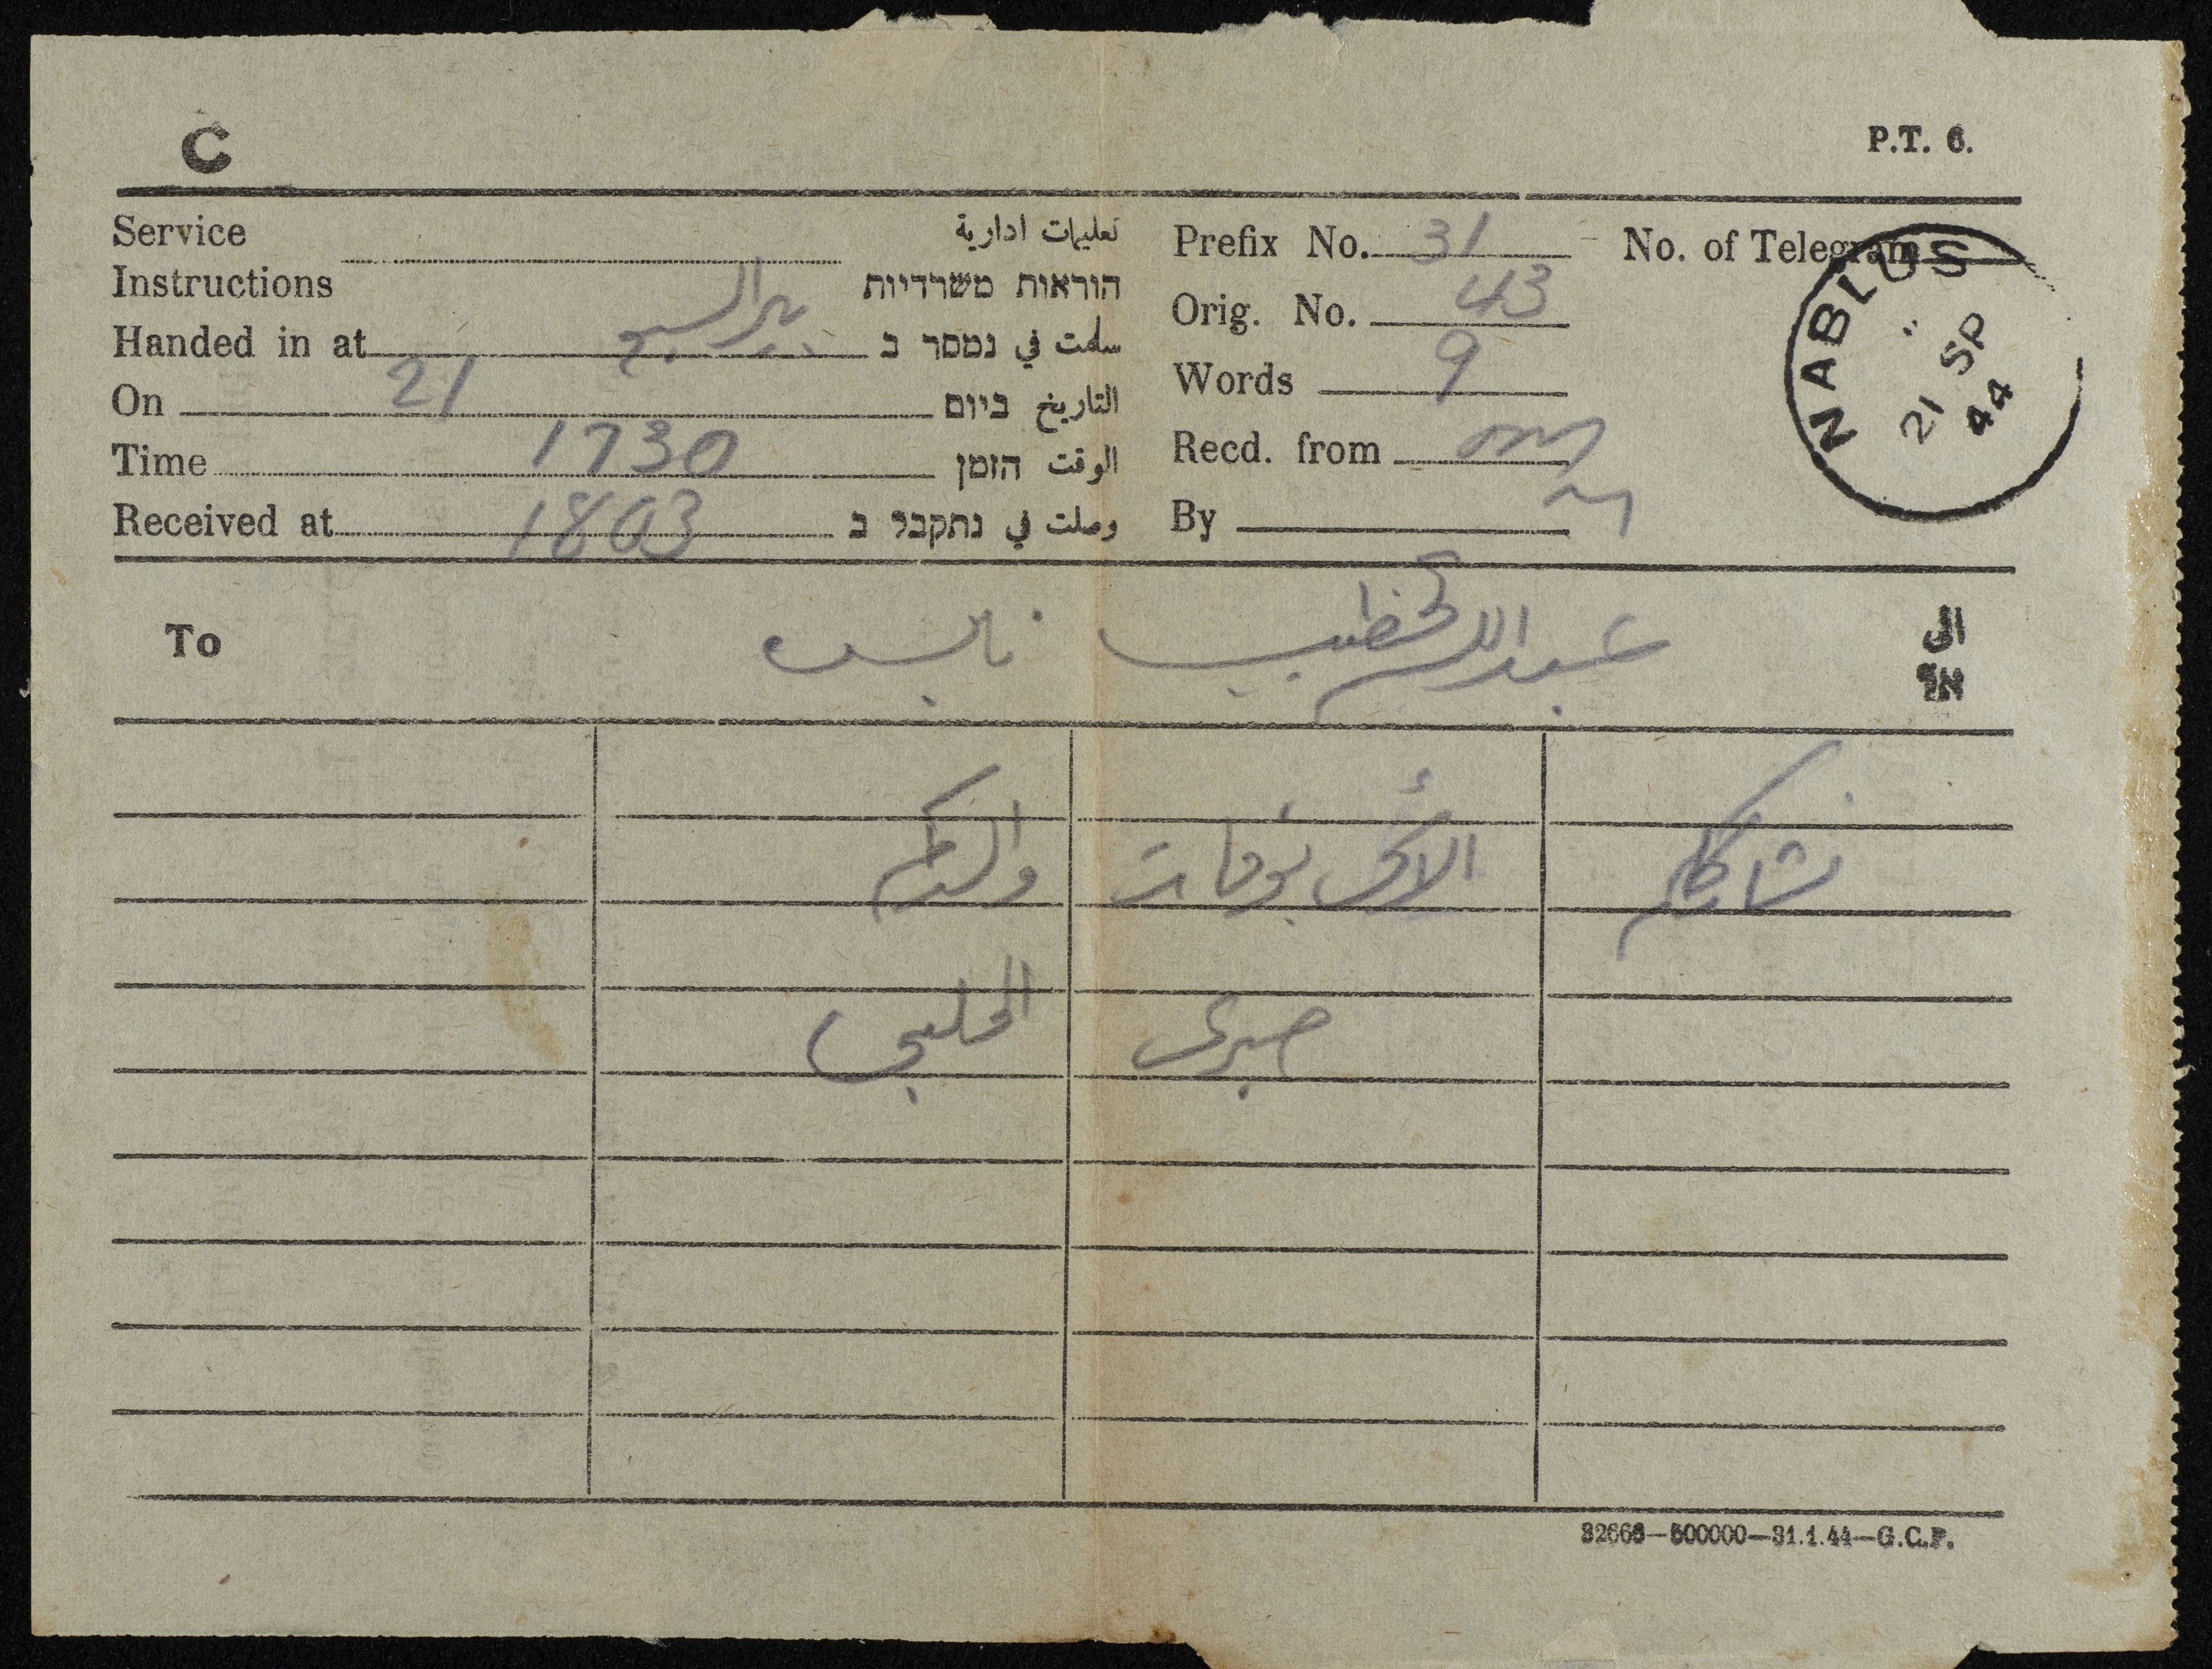 C
P.T. 6.
Service تعليمات ادارية
Instructions הוראות משרדיות
Handed in at بير السبع سلمت في נמסר ב
On 21 התאריך ביום
Time 1730 الوقت הזמן
Received at 1803 وصلت في נתקבל ב
Prefix No. 31 No. of Telegram
Orig. No. 43
Words 9
Recd. from
By
NABLUS
21 SP
44
To عبدالكريم الخطيب نابلس الى
אל
نشارككم الأسى بوفات والدكم
صبري الخليلي
32666—500000—31.1.44—G.C.P.